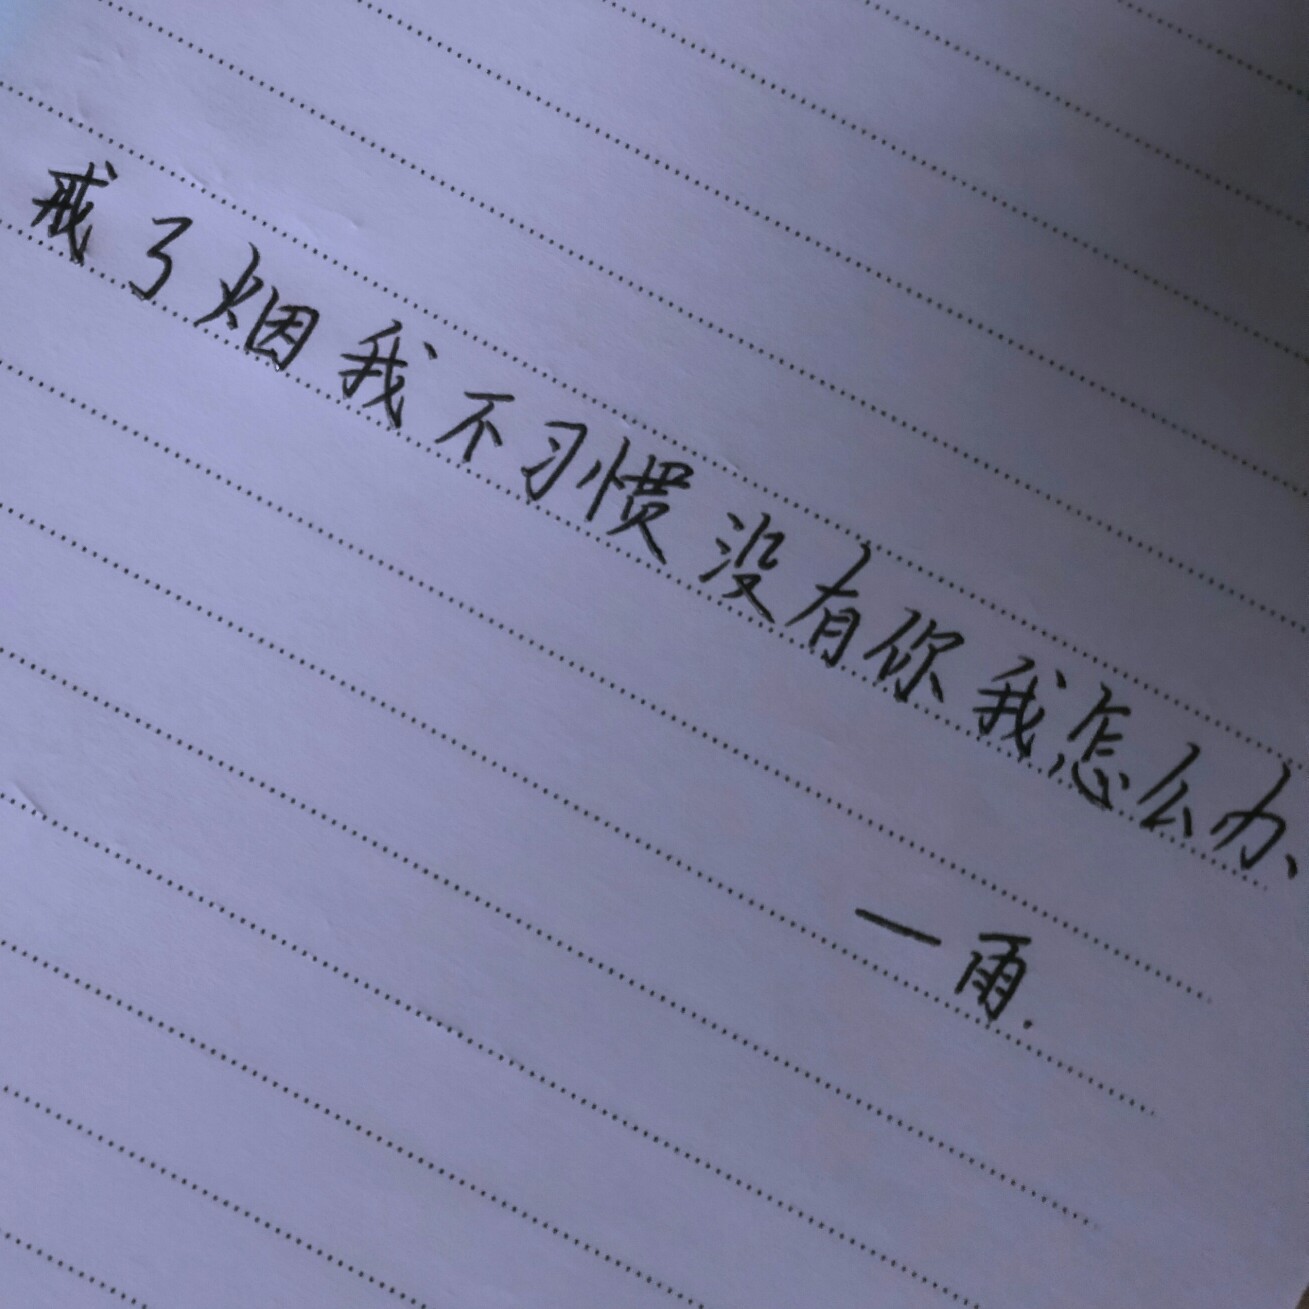 戒了烟我不习惯没有你我怎么办、
一雨.